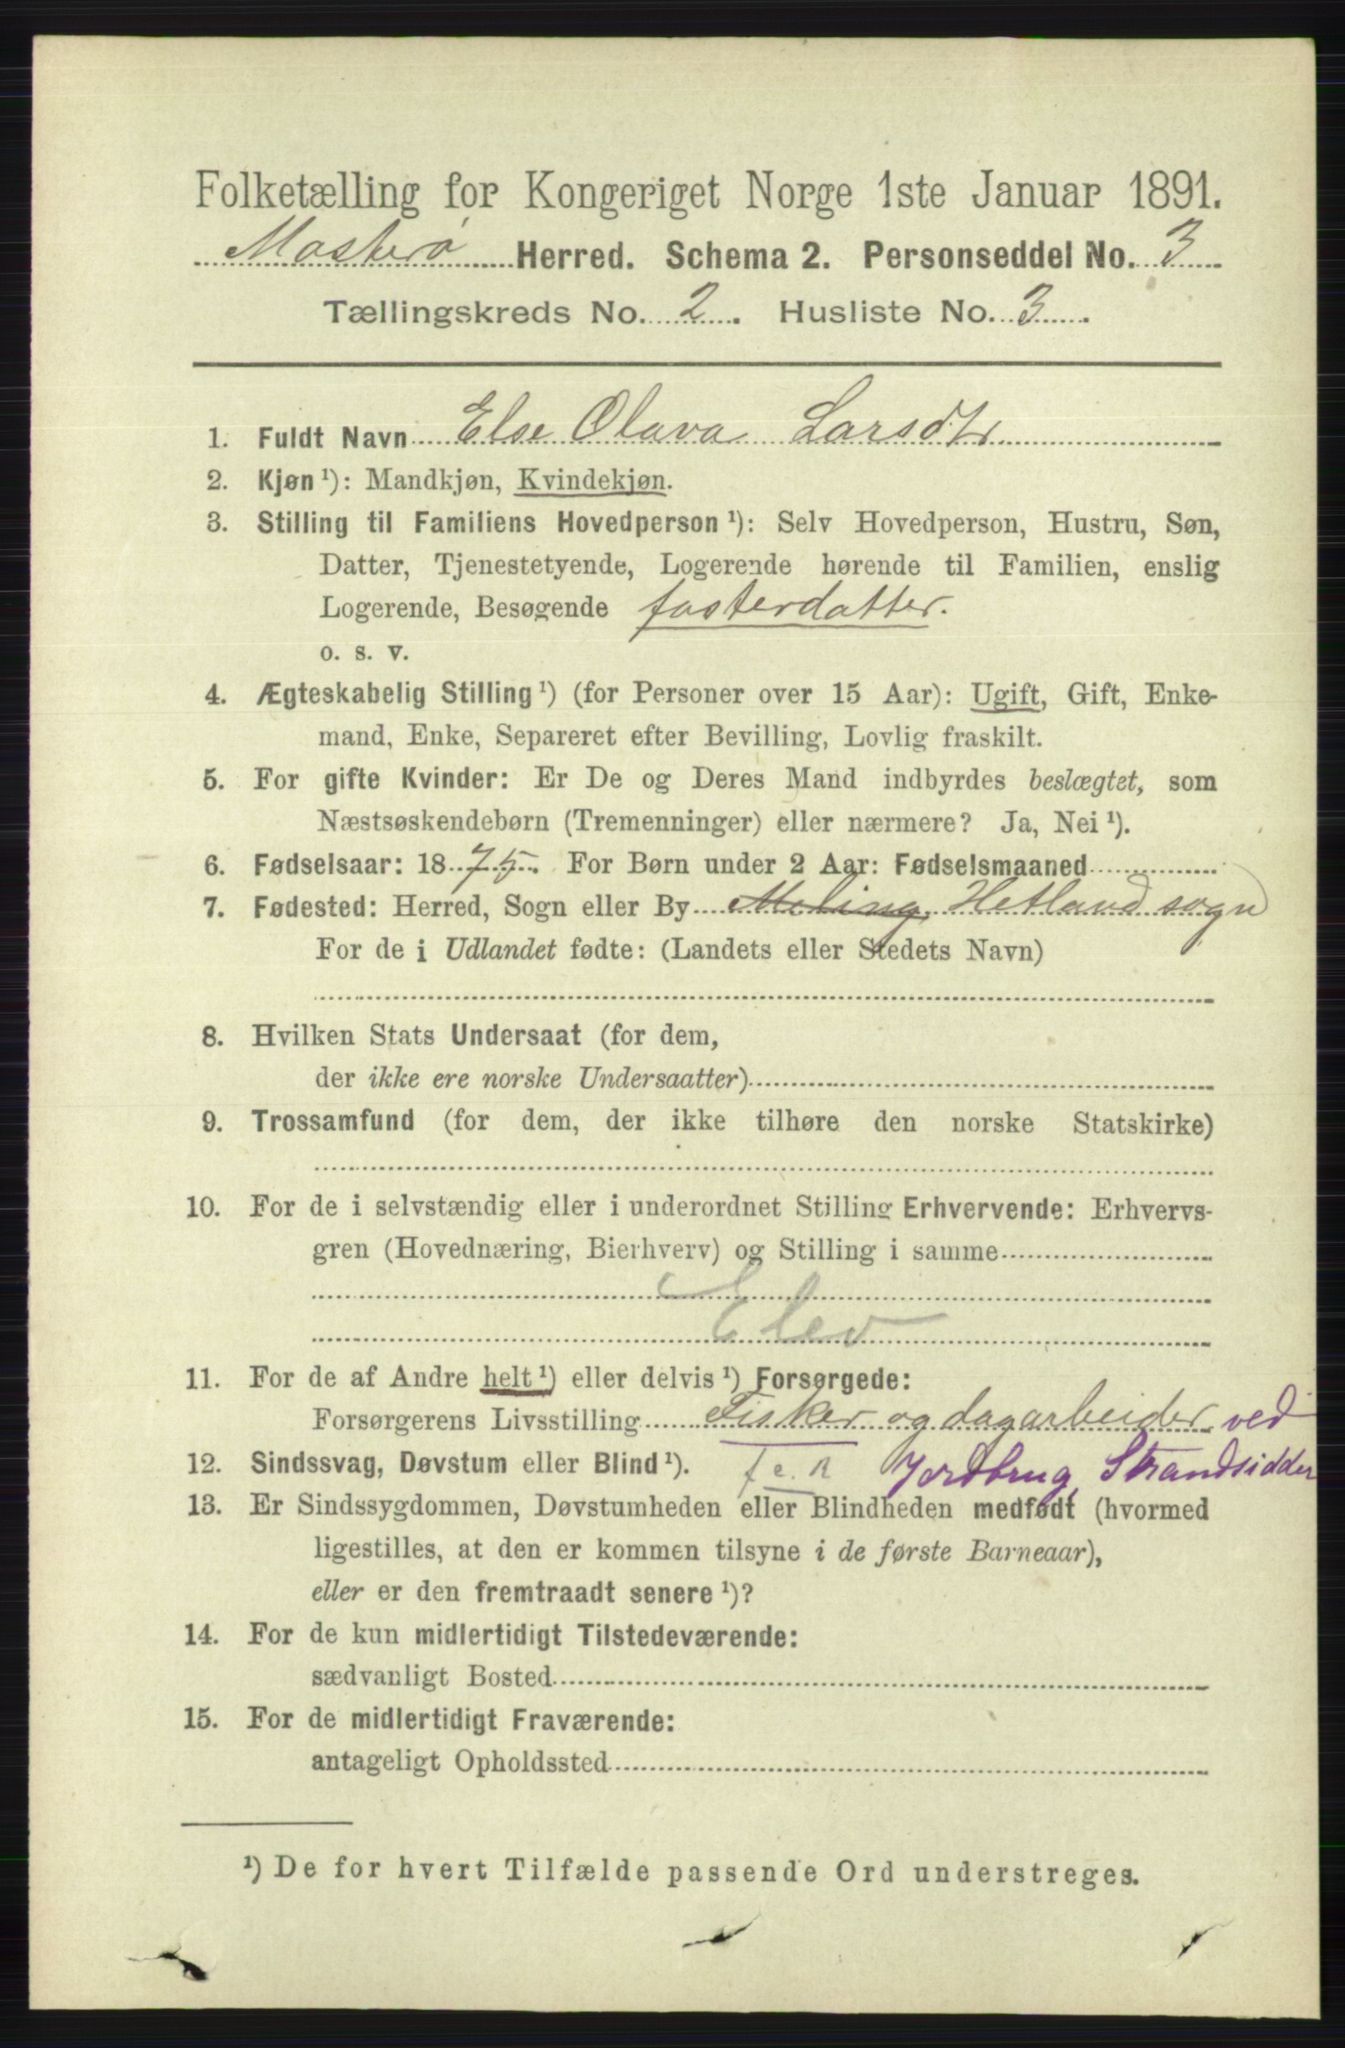 Folketælling for Kongeriget Norge 1ste Januar 1891.
Mosterø Herred. Schema 2. Personseddel No. 3
Tællingskreds No. 2. Husliste No. 3
1. Fuldt Navn Else Olava Larsdtr
2. Kjøn ¹): Mandkjøn, Kvindekjøn.
3. Stilling til Familiens Hovedperson ¹): Selv Hovedperson, Hustru, Søn,
Datter, Tjenestetyende, Logerende hørende til Familien, enslig
Logerende, Besøgende fosterdatter.
o. s. v.
4. Ægteskabelig Stilling ¹) (for Personer over 15 Aar): Ugift, Gift, Enke-
mand, Enke, Separeret efter Bevilling, Lovlig fraskilt.
5. For gifte Kvinder: Er De og Deres Mand indbyrdes beslægtet, som
Næstsøskendebørn (Tremenninger) eller nærmere? Ja, Nei ¹).
6. Fødselsaar: 1875. For Børn under 2 Aar: Fødselsmaaned
7. Fødested: Herred, Sogn eller By Meling, Hetland sogn
For de i Udlandet fødte: (Landets eller Stedets Navn)
8. Hvilken Stats Undersaat (for dem,
der ikke ere norske Undersaatter)
9. Trossamfund (for dem, der ikke tilhøre den norske Statskirke)
10. For de i selvstændig eller i underordnet Stilling Erhvervende: Erhvervs-
gren (Hovednæring, Bierhverv) og Stilling i samme
Elev
11. For de af Andre helt ¹) eller delvis ¹) Forsørgede:
Forsørgerens Livsstilling Fisker og dagarbeider ved
12. Sindssvag, Døvstum eller Blind ¹). Jordbrug, Strandsidder
13. Er Sindssygdommen, Døvstumheden eller Blindheden medfødt (hvormed
ligestilles, at den er kommen tilsyne i de første Barneaar),
eller er den fremtraadt senere ¹)?
14. For de kun midlertidigt Tilstedeværende:
sædvanligt Bosted
15. For de midlertidigt Fraværende:
antageligt Opholdssted
¹) De for hvert Tilfælde passende Ord understreges.